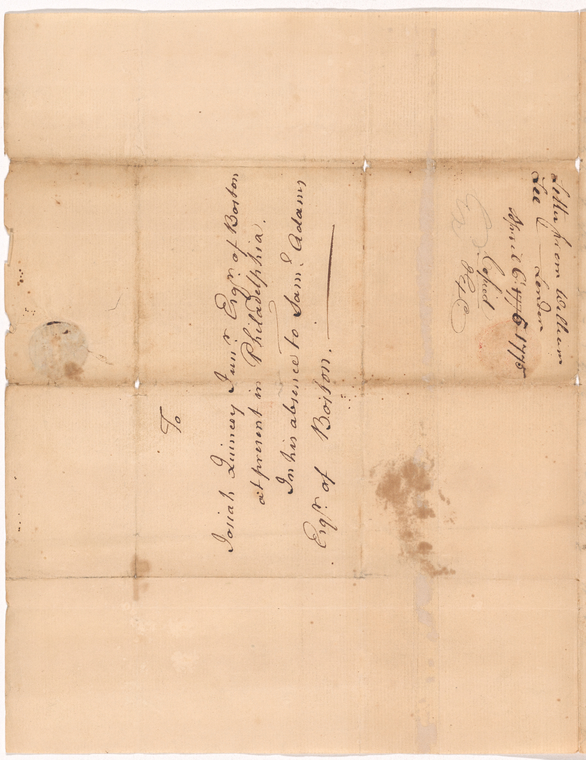 To
Josiah Quincey Junr. Esqr. of Boston
at present in Philadelphia.
In his absence to Saml. Adams
Esqr. of Boston.
Letter from William
Lee London
April 6 1775
Copied